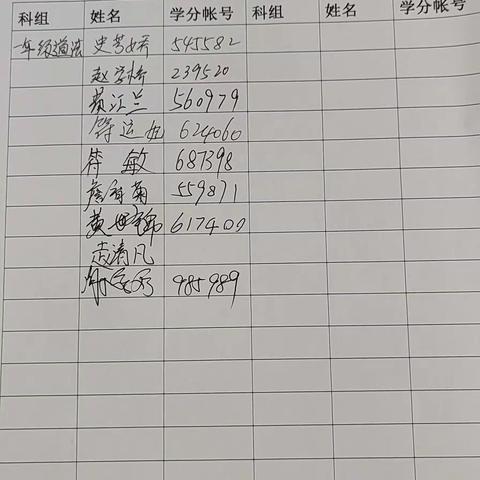 科组 姓名 学分帐号 科组 姓名 学分帐号
一年级道法 史芳妍 545582
赵学婷 239520
黄江兰 560979
符运妃 624060
符敏 687398
詹 菊 559871
黄 617400
赵清凡
985989